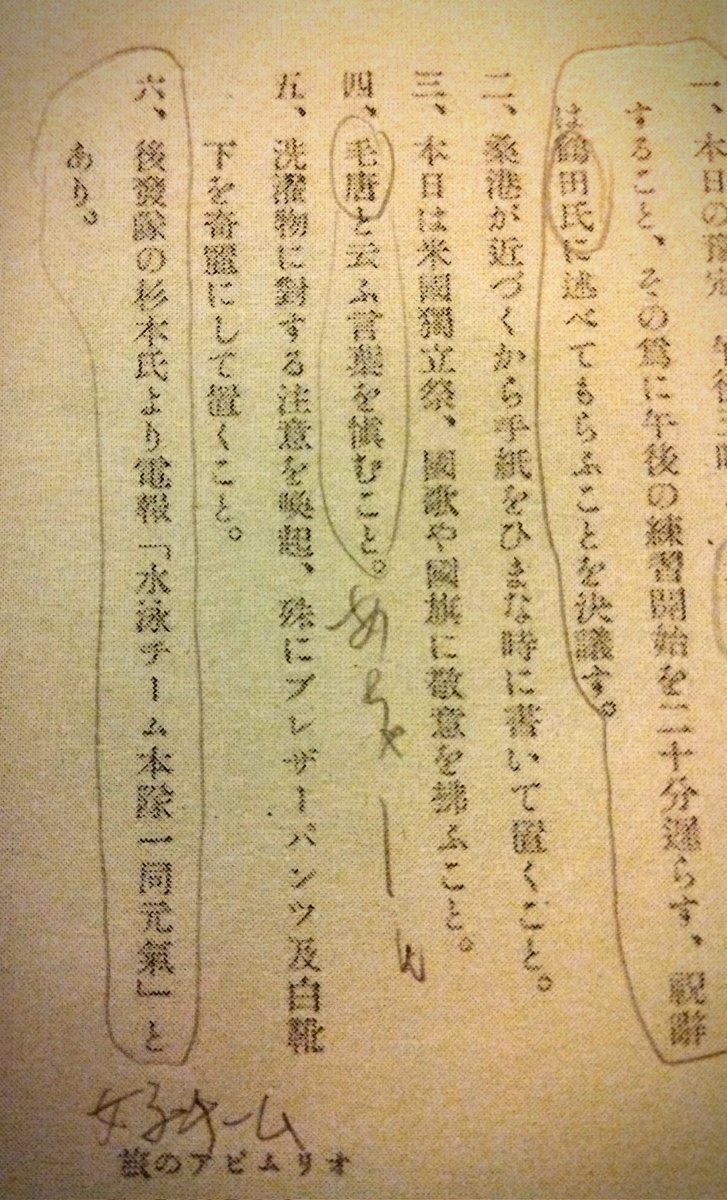 一、本日の豫定 午後三時
すること、その爲に午後の練習開始を二十分遲らす、祝辭
は鶴田氏に述べてもらふことを決議す。
二、桑港が近づくから手紙をひまな時に書いて置くこと。
三、本日は米國獨立祭、國歌や國旗に敬意を拂ふこと。
四、毛唐と云ふ言葉を愼むこと。
五、洗濯物に對する注意を喚起、殊にブレザーパンツ及白靴
下を奇麗にして置くこと。
六、後發隊の杉本氏より電報「水泳チーム本隊一同元氣」と
あり。
女子チーム
旅のアピムリオ